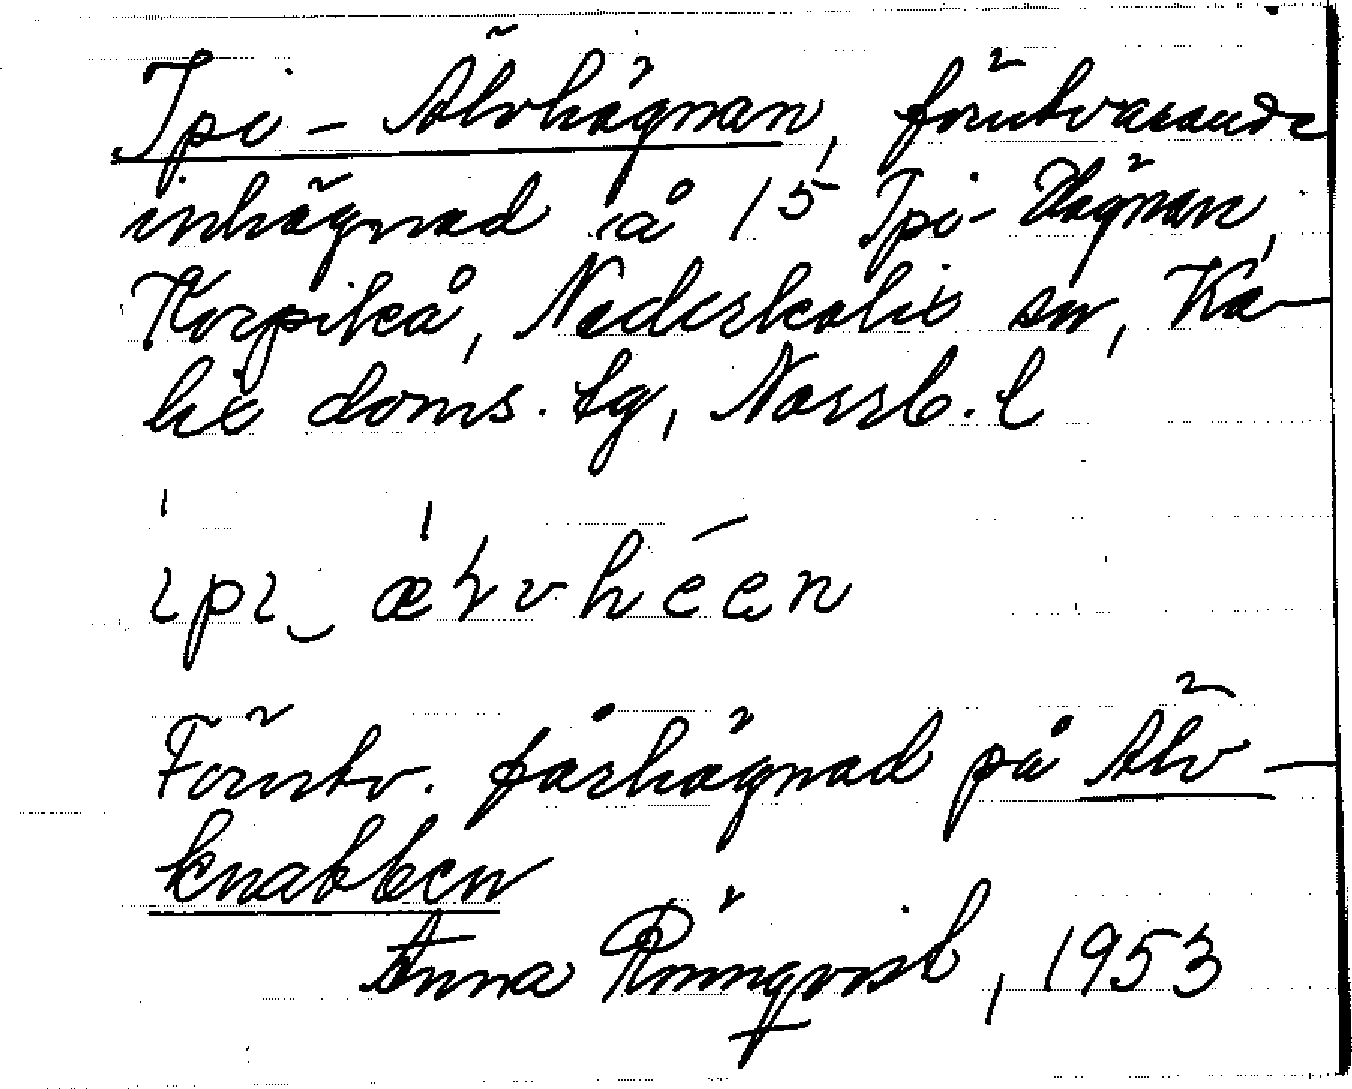 Ipi-Älvhägnan, förutvarande
inhägnad å 1⁵ Ipi-Hägnan,
Korpikå, Nederkalix sn, Ka-
lix doms. tg, Norrb. l
ipi älvhéen
Förutv. fårhägnad på Älv-
knabben
Anna Rönnqvist, 1953